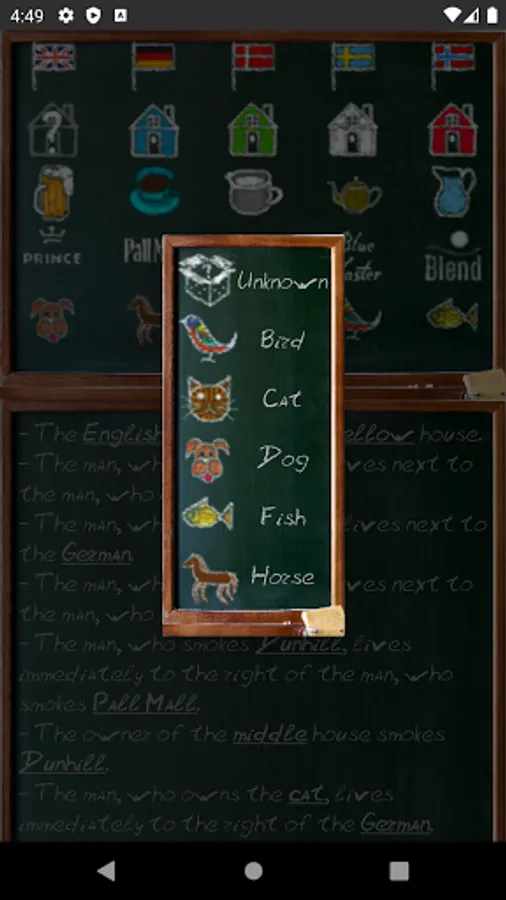 4:49
A
?
PRINCE
Pall M
Blue
aster
Blend
? Unknown
Bird
Cat
Dog
Fish
Horse
- The English ellow house.
- The man, who ves next to
the man, who
- The man, wh ves next to
the German.
- The man, wh ves next to
the man, who
- The man, who smokes Dunhill, lives
immediately to the right of the man, who
smokes Pall Mall.
- The owner of the middle house smokes
Dunhill.
- The man, who owns the cat, lives
immediately to the right of the German.